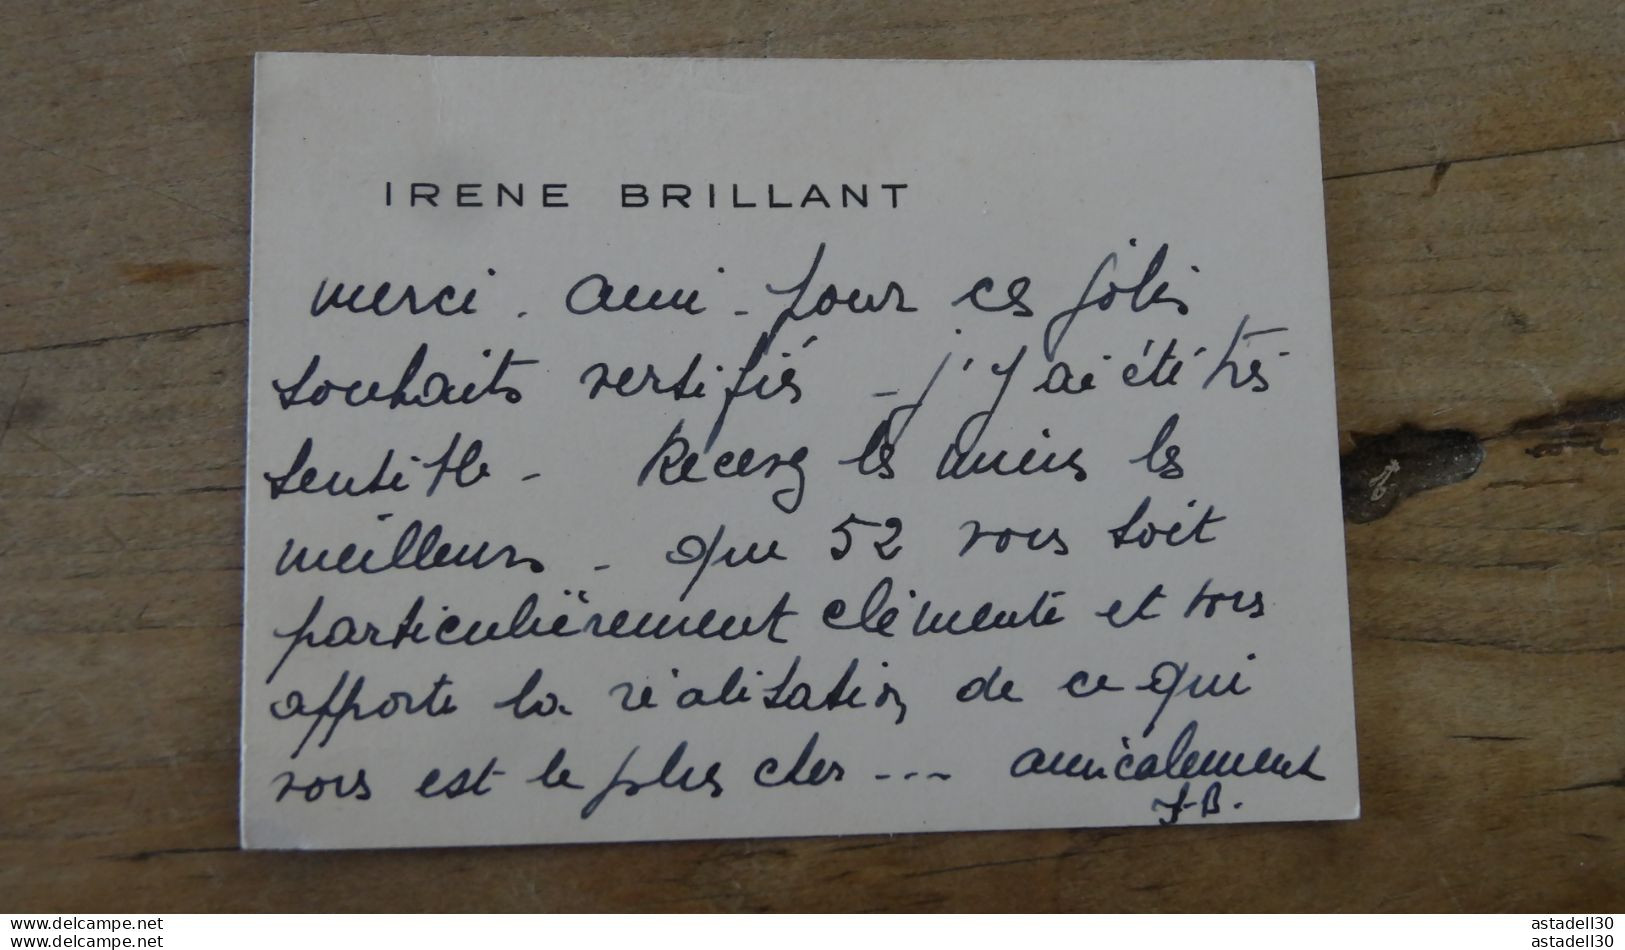 IRENE BRILLANT
merci. ami - pour ces jolis
souhaits versifiés - j'y ai été très
sensible - Recevez les miens les
meilleurs - que 52 vous soit
particulièrement clémente et vous
apporte la réalisation de ce qui
vous est le plus cher --- amicalement
I-B.
www.delcampe.net
www.delcampe.net
astadell30
astadell30